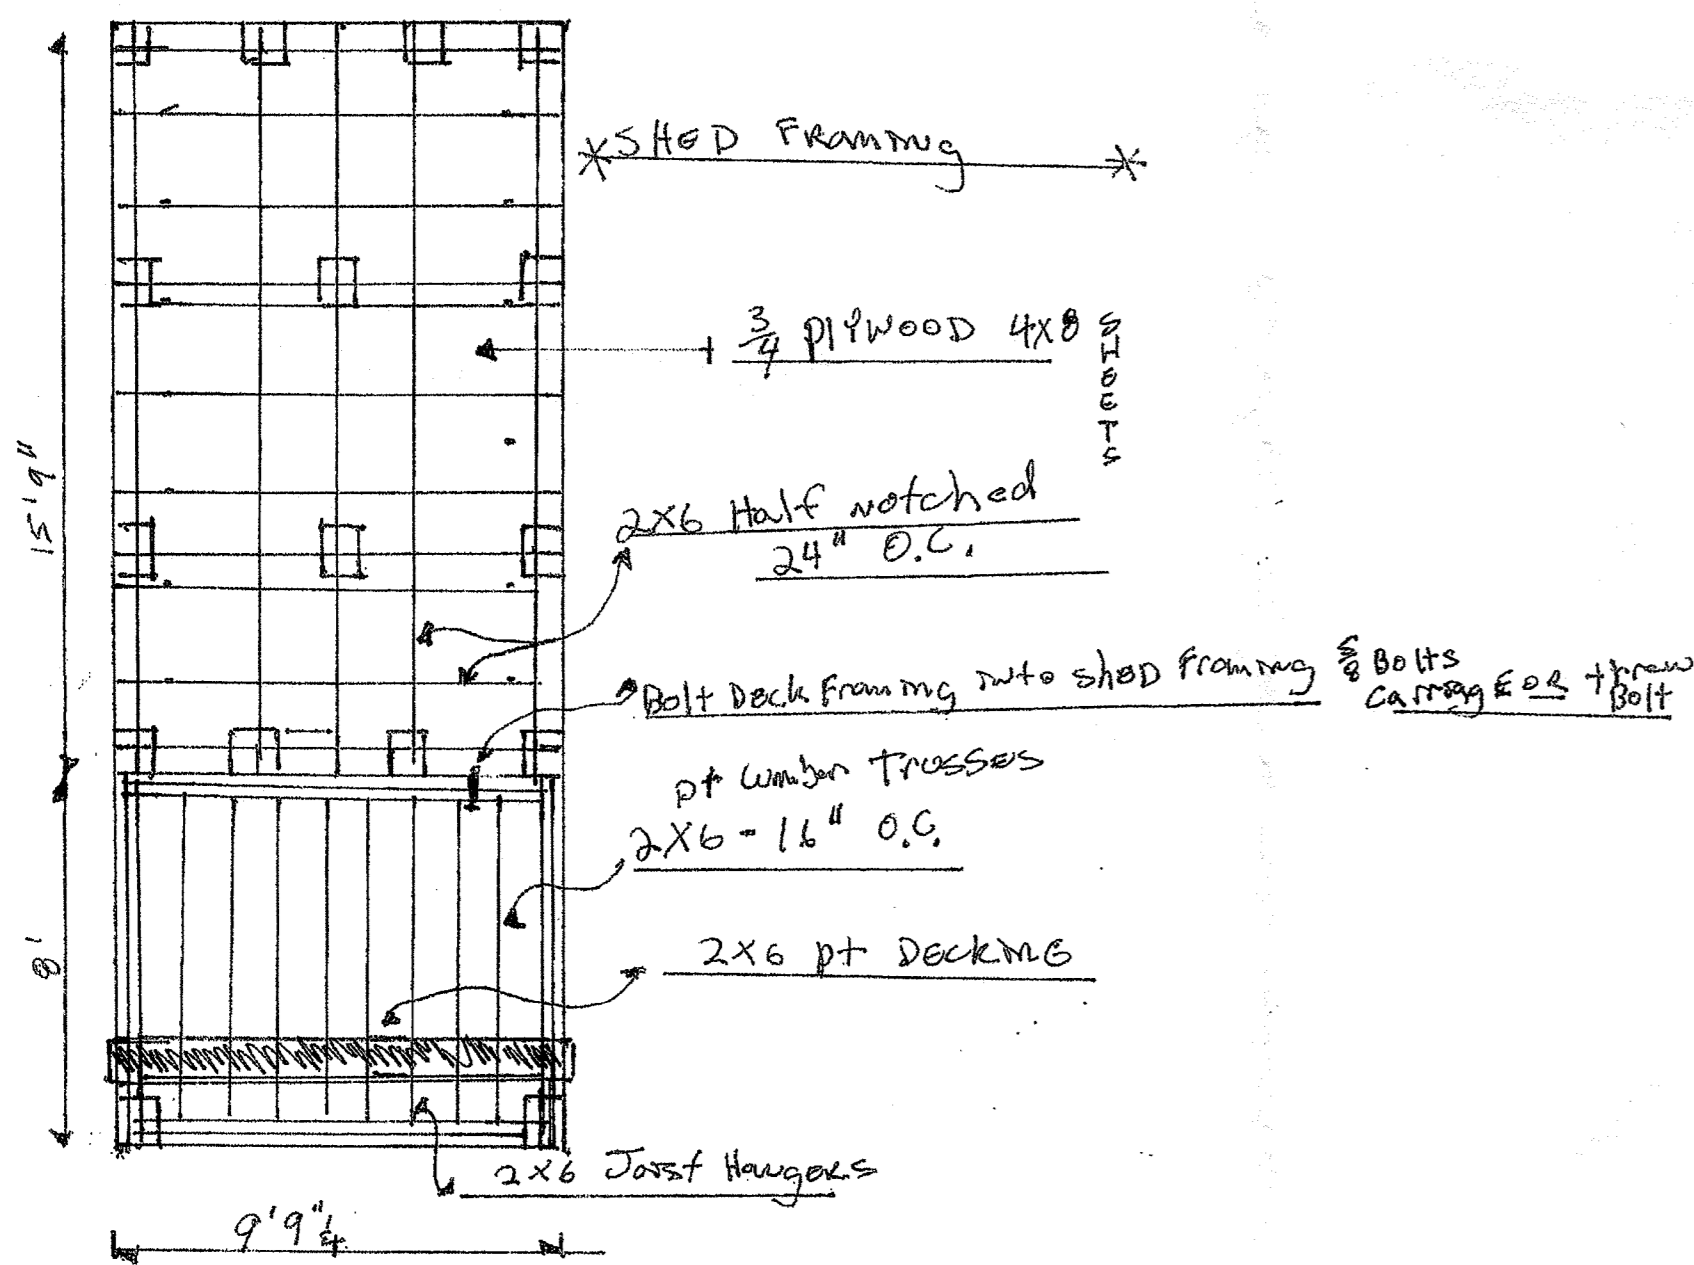 SHED Framing
3/4 PLYWOOD 4X8 SHEETS
2X6 Half notched
24" O.C.
15'9"
Bolt Deck Framing into shed Framing 5/8 Bolts
carriage OR threw Bolt
pt lumber Trusses
2X6 - 16" O.C.
8'
2X6 pt DecKING
2X6 Joist Hangers
9'9"1/4